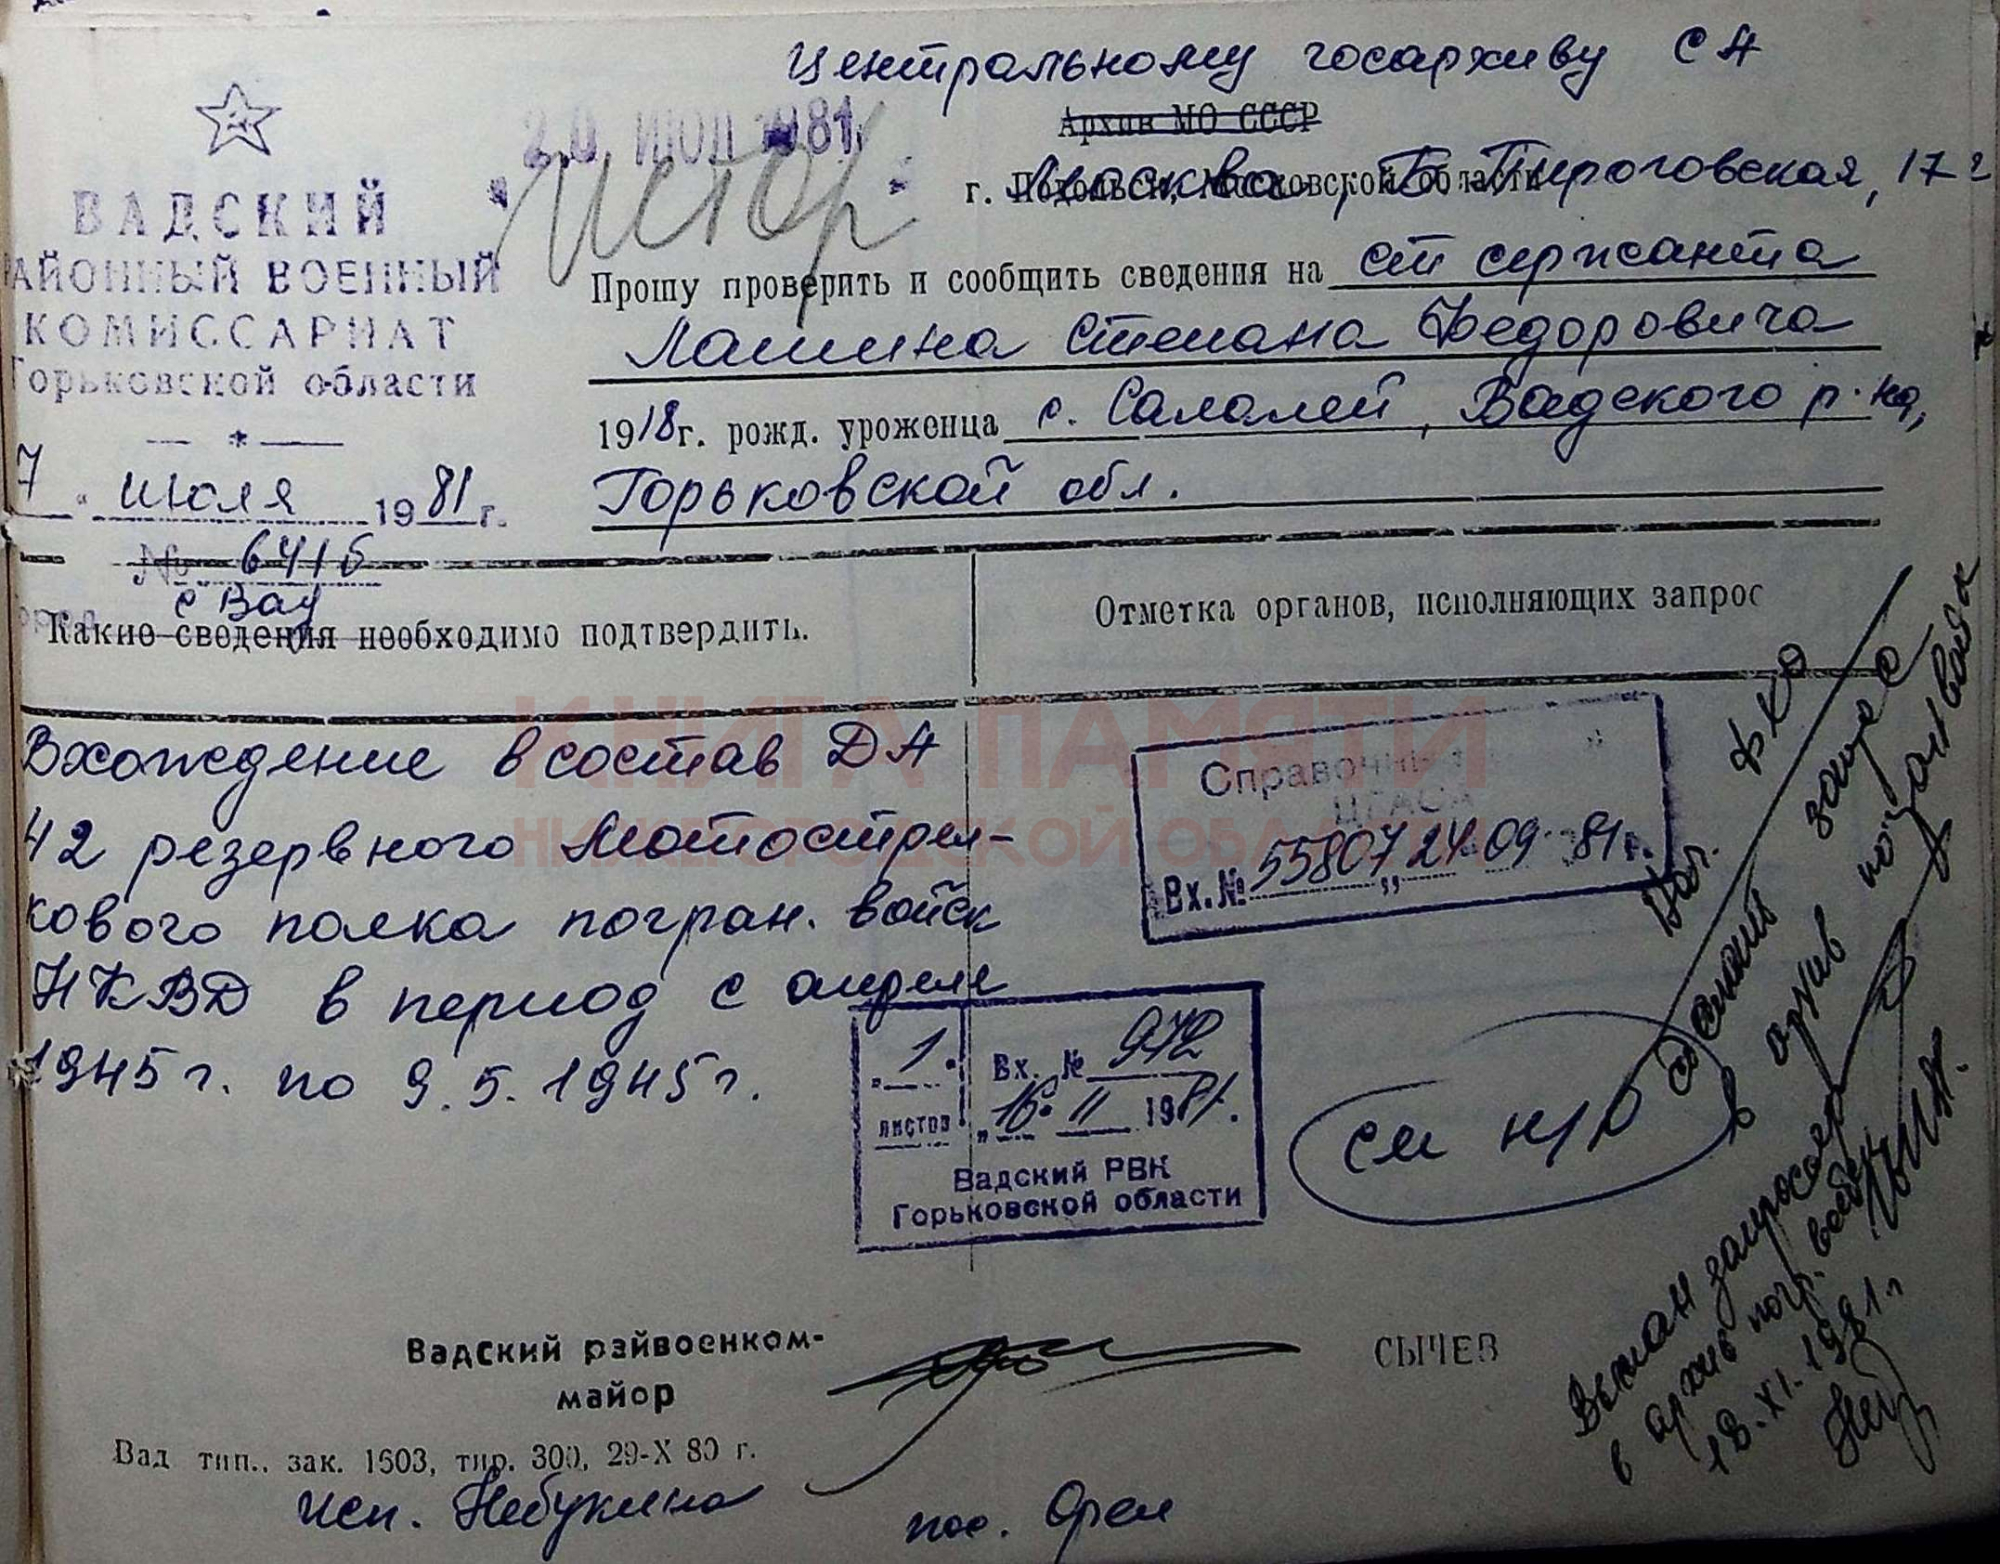 Центральному госархиву СА
Архив МО СССР
20 ИЮЛ 1981
Истор
г. Москва, Б Пироговская, 17 г
ВАДСКИЙ
РАЙОННЫЙ ВОЕННЫЙ
КОМИССАРИАТ
Горьковской области
7 " июля 1981 г.
№ 6416
с Вад
Прошу проверить и сообщить сведения на ст сержанта
Лашина Степана Федоровича
1918 г. рожд. уроженца с. Салалей, Вадского р-на,
Горьковской обл.
Какие сведения необходимо подтвердить.
Отметка органов, исполняющих запрос
Вхождение в состав ДА
42 резервного мотострел-
кового полка погран. войск
НКВД в период с апреля
1945 г. по 9.5.1945 г.
КНИГА ПАМЯТИ
НИЖЕГОРОДСКОЙ ОБЛАСТИ
Справочный
ЦГАСА
Вх. № 55807 „ 24 09 81 г.
„ 1. "
листов
Вх. № 972
„ 16 " 11 1981.
Вадский РВК
Горьковской области
см н/о
в архив
Выслан запросом
в архив погр. войск
18.XI.1981 г
Вадский райвоенком-
майор
СЫЧЕВ
Вад тип., зак. 1503, тир. 300, 29-X 80 г.
исп. Небукина